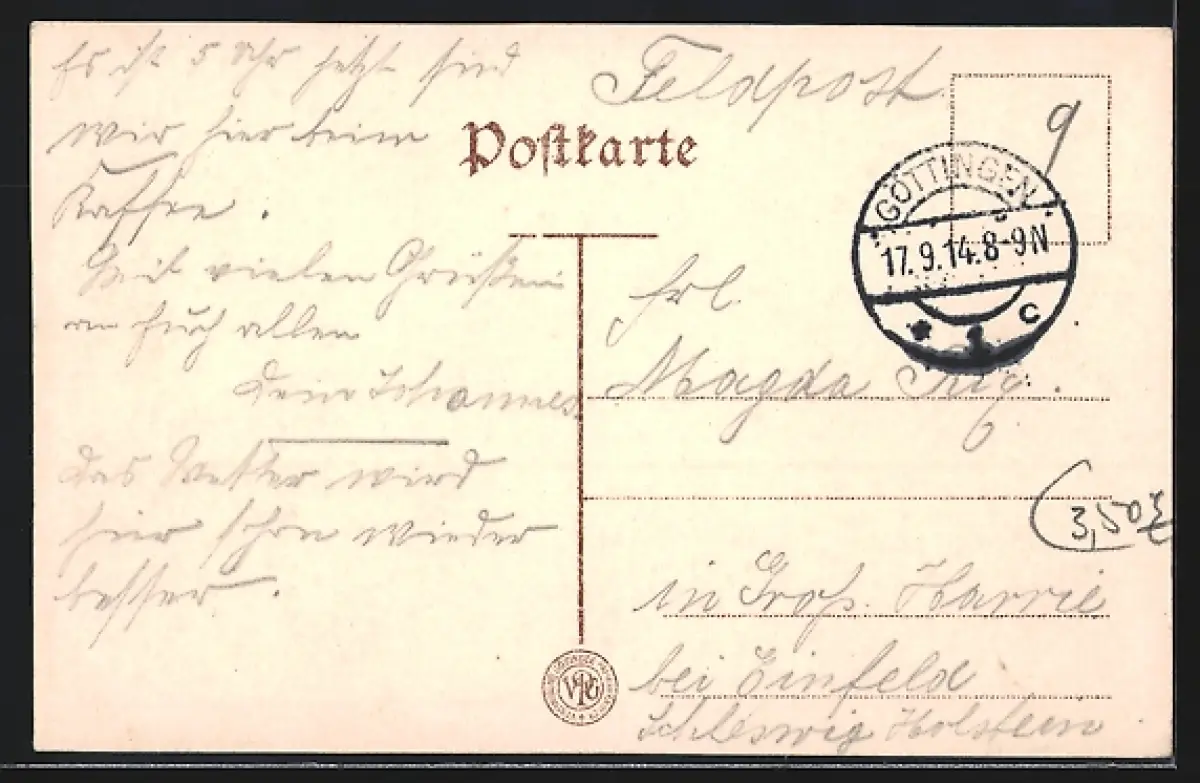 Es ist 5 Uhr jetzt sind
wir hier beim
Kaffee.
Mit vielen Grüßen
an Euch allen
Dein Johannes
Das Wetter wird
hier schon wieder
besser.
Feldpost
Postkarte
9
GÖTTINGEN
17.9.14.8-9N
* c
Frl.
Magda
3,50
in Groß. Harrie
bei Einfeld
Schleswig Holstein